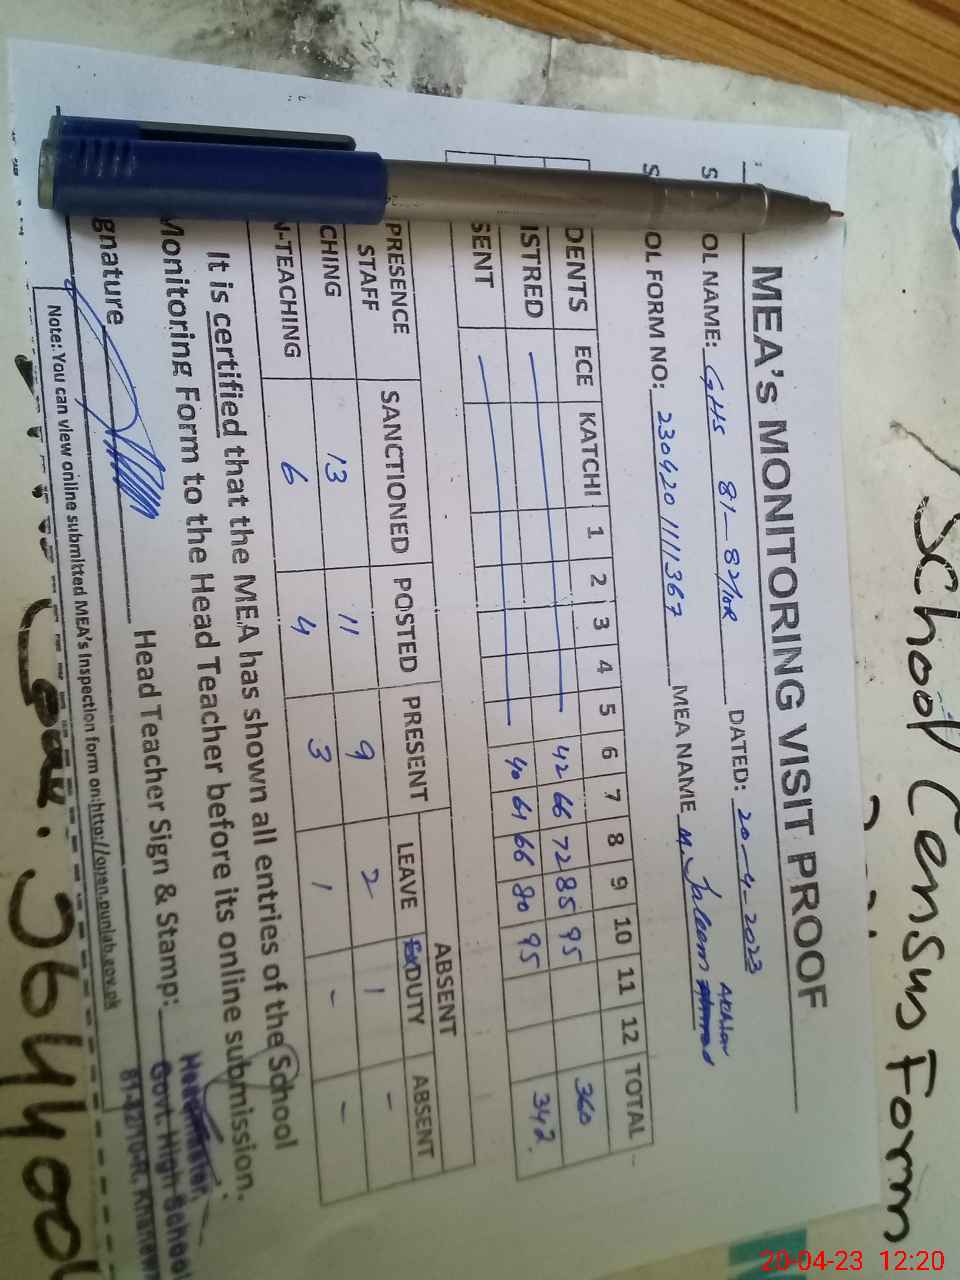 School Census Form
MEA'S MONITORING VISIT PROOF
OL NAME: GHS 81-82/10R DATED: 20-4-2023
OL FORM NO: 230420111367 MEA NAME M. Akhtar
DENTS ECE KATCHI 1 2 3 4 5 6 7 8 9 10 11 12 TOTAL
ISTRED 42 66 72 85 95 360
SENT 40 61 66 80 95 342
ABSENT
PRESENCE SANCTIONED POSTED PRESENT LEAVE DUTY ABSENT
STAFF
CHING 13 11 9 2 1 -
N-TEACHING 6 4 3 1 - -
It is certified that the MEA has shown all entries of the School
Monitoring Form to the Head Teacher before its online submission.
gnature Head Teacher Sign & Stamp:
Headmaster,
Govt. High School
81-82/10-R, Khanewal
Note: You can view online submitted MEA's Inspection form on:http://open.punjab.gov.pk
20-04-23 12:20